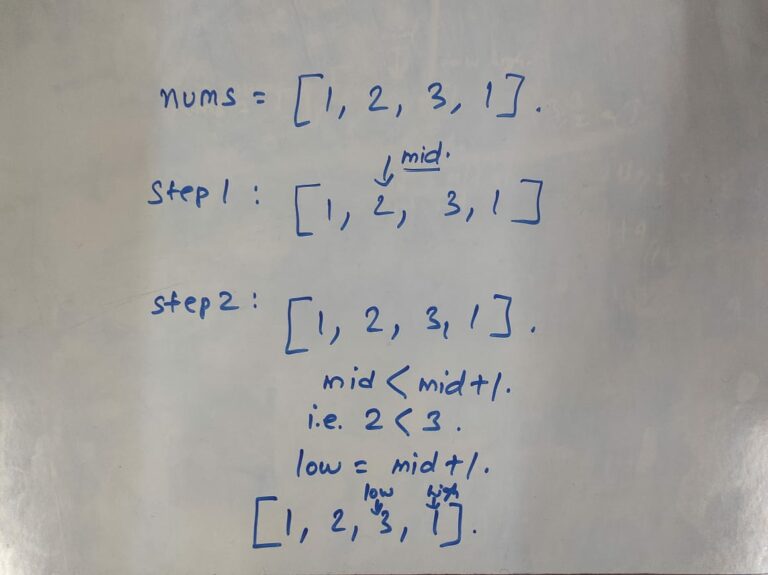 nums = [1, 2, 3, 1].
mid.
step 1 : [1, 2, 3, 1]
step 2 : [1, 2, 3, 1].
mid < mid+1.
i.e. 2 < 3.
low = mid+1.
low high
[1, 2, 3, 1].